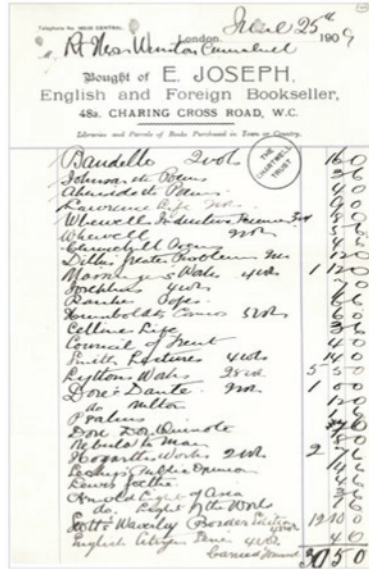 Telephone No. CENTRAL.
London, June 25th 1909
Rt Hon Winston Churchill
Bought of E. JOSEPH,
English and Foreign Bookseller,
48a, CHARING CROSS ROAD, W.C.
Libraries and Parcels of Books Purchased in Town or Country.
THE CHARTWELL TRUST
Bandello 2 vols 16 0
Johnson Poems 2 6
Akenside Poems 4 0
Lawrence Life 9 0
Whewell Inductive Sciences 3 vol 8 0
Whewell 2 vols 5 6
Churchill 4 6
Greater Problem 12 0
Works 4 vols 1 12 0
4 vols
Ranke Popes 6 6
Humboldts Cosmos 5 vols 6 0
Cellini Life 3 6
Council of Trent 4 0
Smith Lectures 4 vols 14 0
Lyttons Works 28 vol 5 5 0
Dore's Dante 2 vols 1 0 0
do Milton 12 0
Psalms 1 6
Dore Don Quixote
Nebula to Man 8 0
Hogarths Works 2 vols 2
Leckys Public Opinion
Lewes Goethe 4 6
Arnold Light of Asia 3 6
do. Light of the World
Scott's Waverley Border Edition 12 10 0
English Citizen Series 4 vols 6 0
Carried Forward 30 5 0